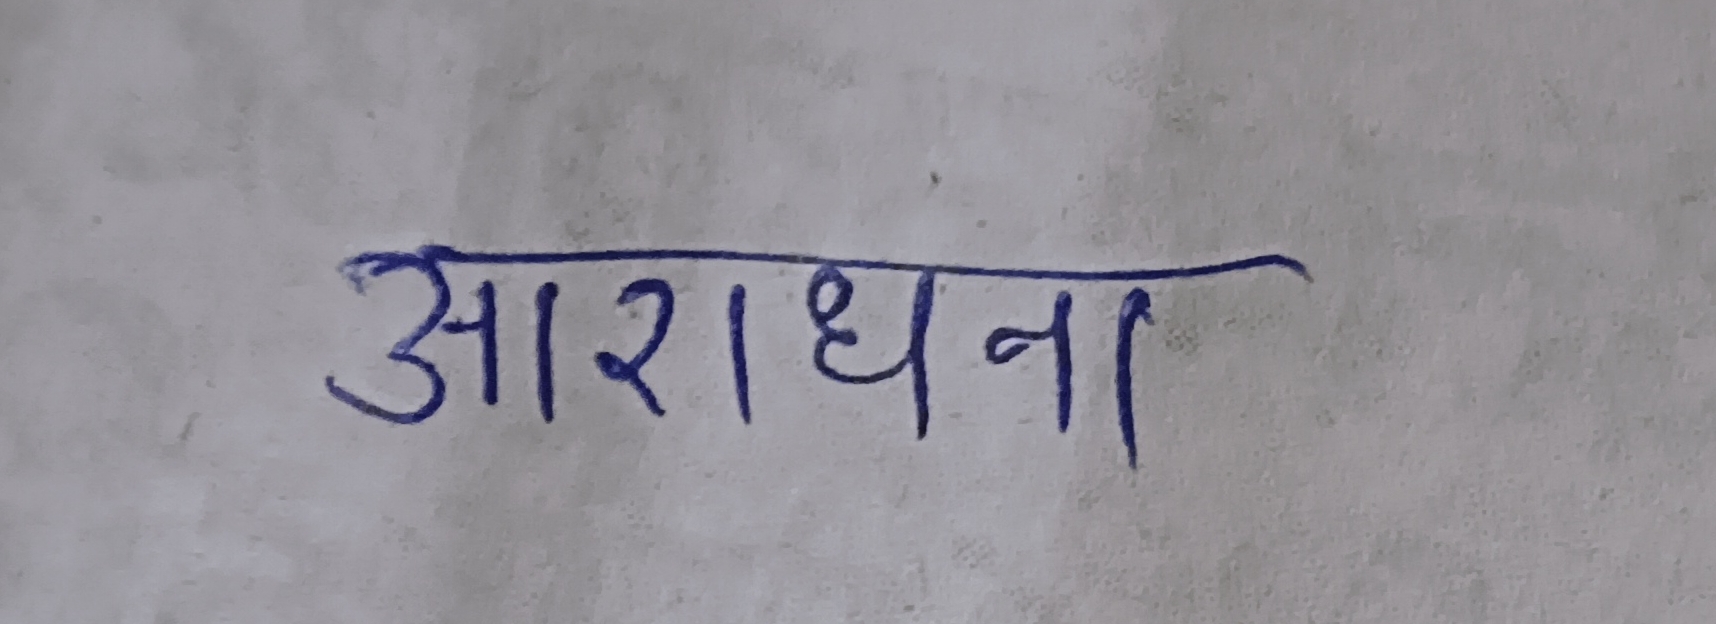 आराधना